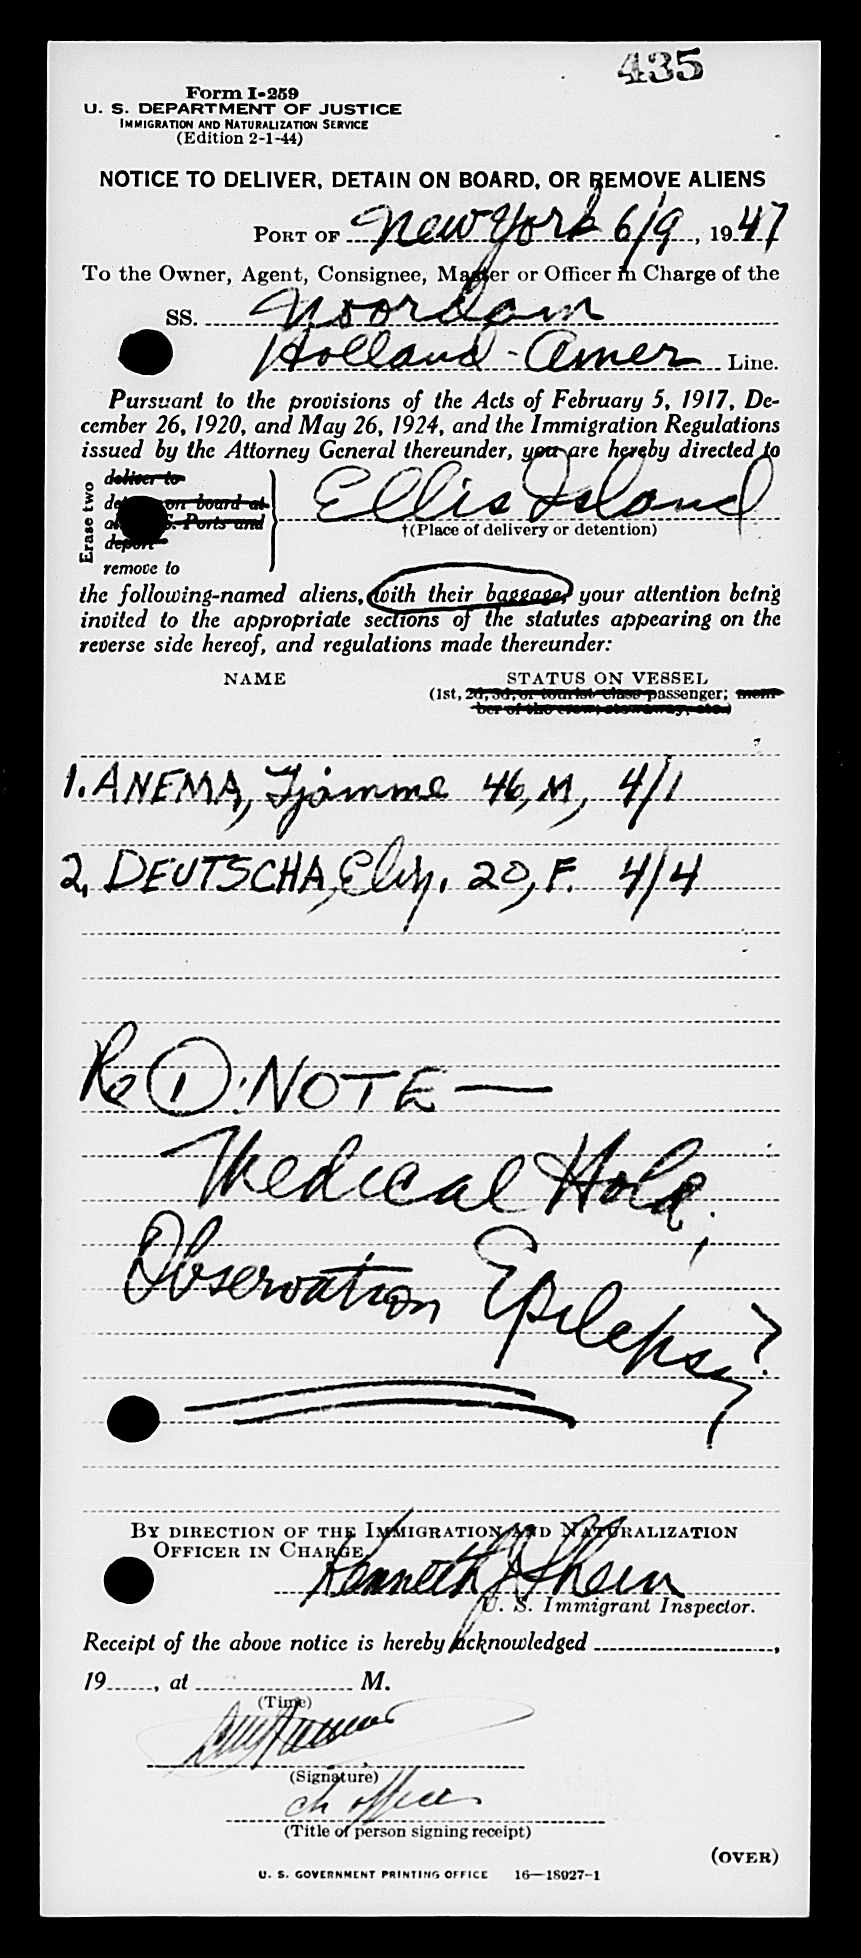 435
Form I-259
U. S. DEPARTMENT OF JUSTICE
IMMIGRATION AND NATURALIZATION SERVICE
(Edition 2-1-44)
NOTICE TO DELIVER, DETAIN ON BOARD, OR REMOVE ALIENS
PORT OF New York 6/9, 1947
To the Owner, Agent, Consignee, Master or Officer in Charge of the
SS. Noordam
Holland-Amer Line.
Pursuant to the provisions of the Acts of February 5, 1917, De-
cember 26, 1920, and May 26, 1924, and the Immigration Regulations
issued by the Attorney General thereunder, you are hereby directed to
Erase two
deliver to
on board at
S. Ports and
deport
remove to
Ellis Island
†(Place of delivery or detention)
the following-named aliens, with their baggage, your attention being
invited to the appropriate sections of the statutes appearing on the
reverse side hereof, and regulations made thereunder:
NAME STATUS ON VESSEL
(1st, 2d, 3d, or tourist class passenger; mem-
ber of the crew; stowaway, etc.)
1. ANEMA, Tjamme 46, M, 4/1
2, DEUTSCHA, Eliz. 20, F. 4/4
Re 1: NOTE —
Medical Hold;
Observation Epilepsy?
BY DIRECTION OF THE IMMIGRATION AND NATURALIZATION
OFFICER IN CHARGE
Kenneth J. Shein
U. S. Immigrant Inspector.
Receipt of the above notice is hereby acknowledged ,
19 , at M.
(Time)
(Signature)
ch officer
(Title of person signing receipt)
(OVER)
U. S. GOVERNMENT PRINTING OFFICE 16—18027-1